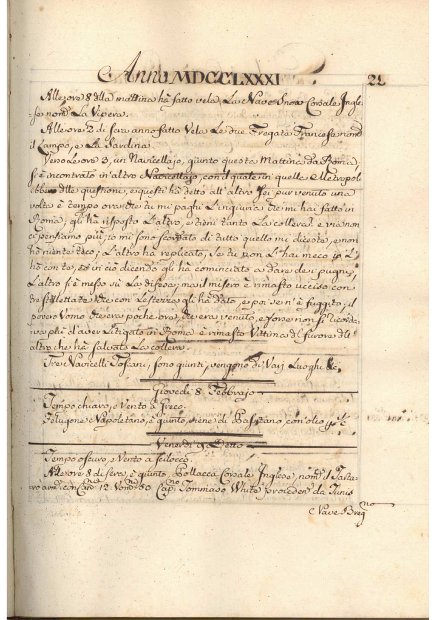 Anno MDCCLXXXI 21
Alle ore 8 della mattina hà fatto vela, La Nave Snow Corsale Ingle-
se nom.ta La Vipera.
Alle ore 2 di sera anno fatto Vela Le due Fregate Francese nom.te
il Campo, e La Sardina.
Verso Le ore 3, un Navicellajo, giunto questa Mattina da Roma
si è incontrato in altro Navicellajo, con il quale in quelle Metropoli
ebbero delle questioni, e questi hà detto all'altro sei pur venuto una
volta è tempo ora che tu mi paghi L'ingiuria che mi hai fatto in
Roma; gli hà risposto L'altro, e tieni tanto La collera? e via non
ci pensiamo più, io mi sono scordato di tutto quello mi dicesti, e non
hò niente teco; L'altro hà replicato, Se tu non L'hai meco io L'
hò con te, et in ciò dicendo gli hà cominciato a dare dei pugni,
L'altro si è messo sù La difesa; ma il misero è rimasto ucciso con
tre stilettate che con La sferra gli hà dato, e poi se n'è fuggito; il
povero Uomo che era poche ore, che era venuto, e forse non si ricorda-
va più d'aver Litigato in Roma è rimasto Vittima del furore dell'
altro che hà saliato La collera.
Tre Navicelli Toscani, sono giunti, vengono di Varj Luoghi &c.
Giovedi 8 Febbrajo
Tempo chiaro, e Vento a Greco
Felugone Napoletano, è giunto, viene di Bastano, con olio &c.
Venerdi 9 Detto
Tempo oscuro, e Vento a scilocco
Alle ore 8 di sera, è giunto, Pollacca Corsale Inglese, nom.ta
con Can.ni 12 Uom.ni 50 Cap.no Tommaso White proceden. da Tunis
Nave Breg.no